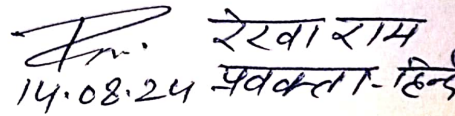 रेखा राम
14.08.24 प्रवक्ता-हिन्दी